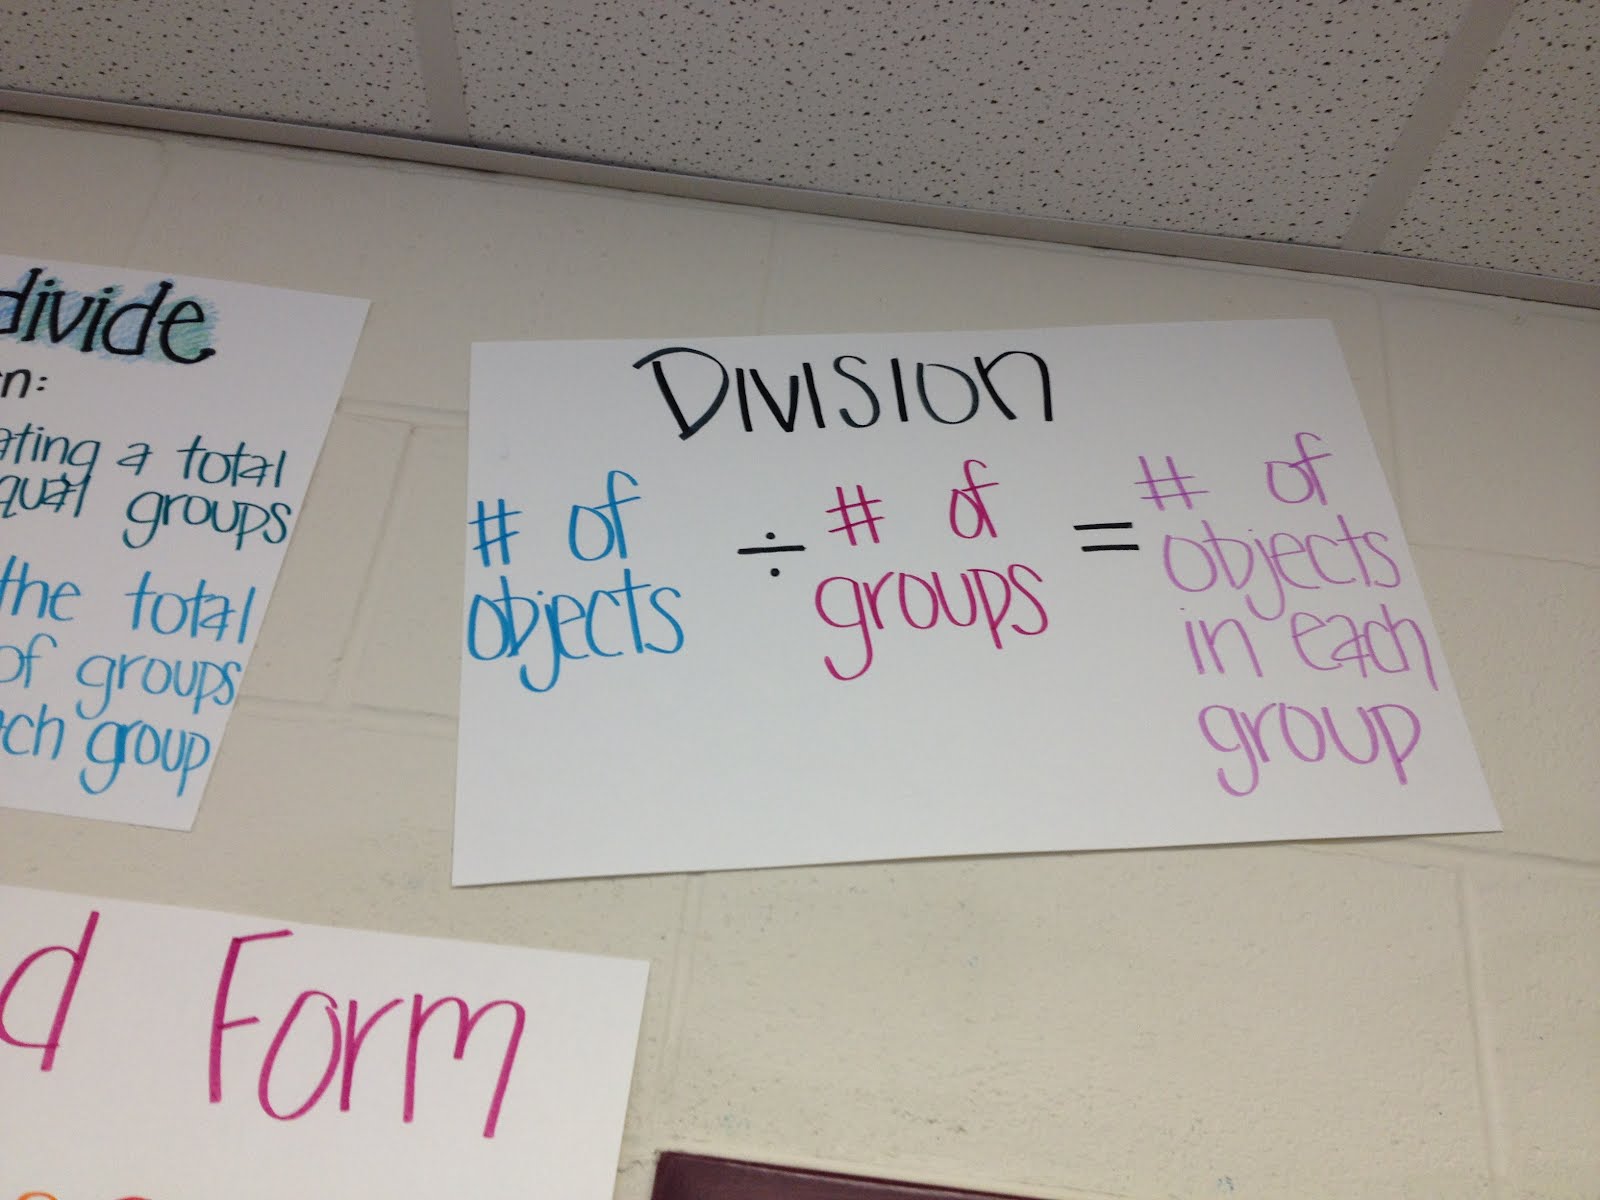 divide
n:
ating a total
qual groups
the total
of groups
ch group
DIVISION
# of
objects
÷
# of
groups
=
# of
objects
in each
group
d Form